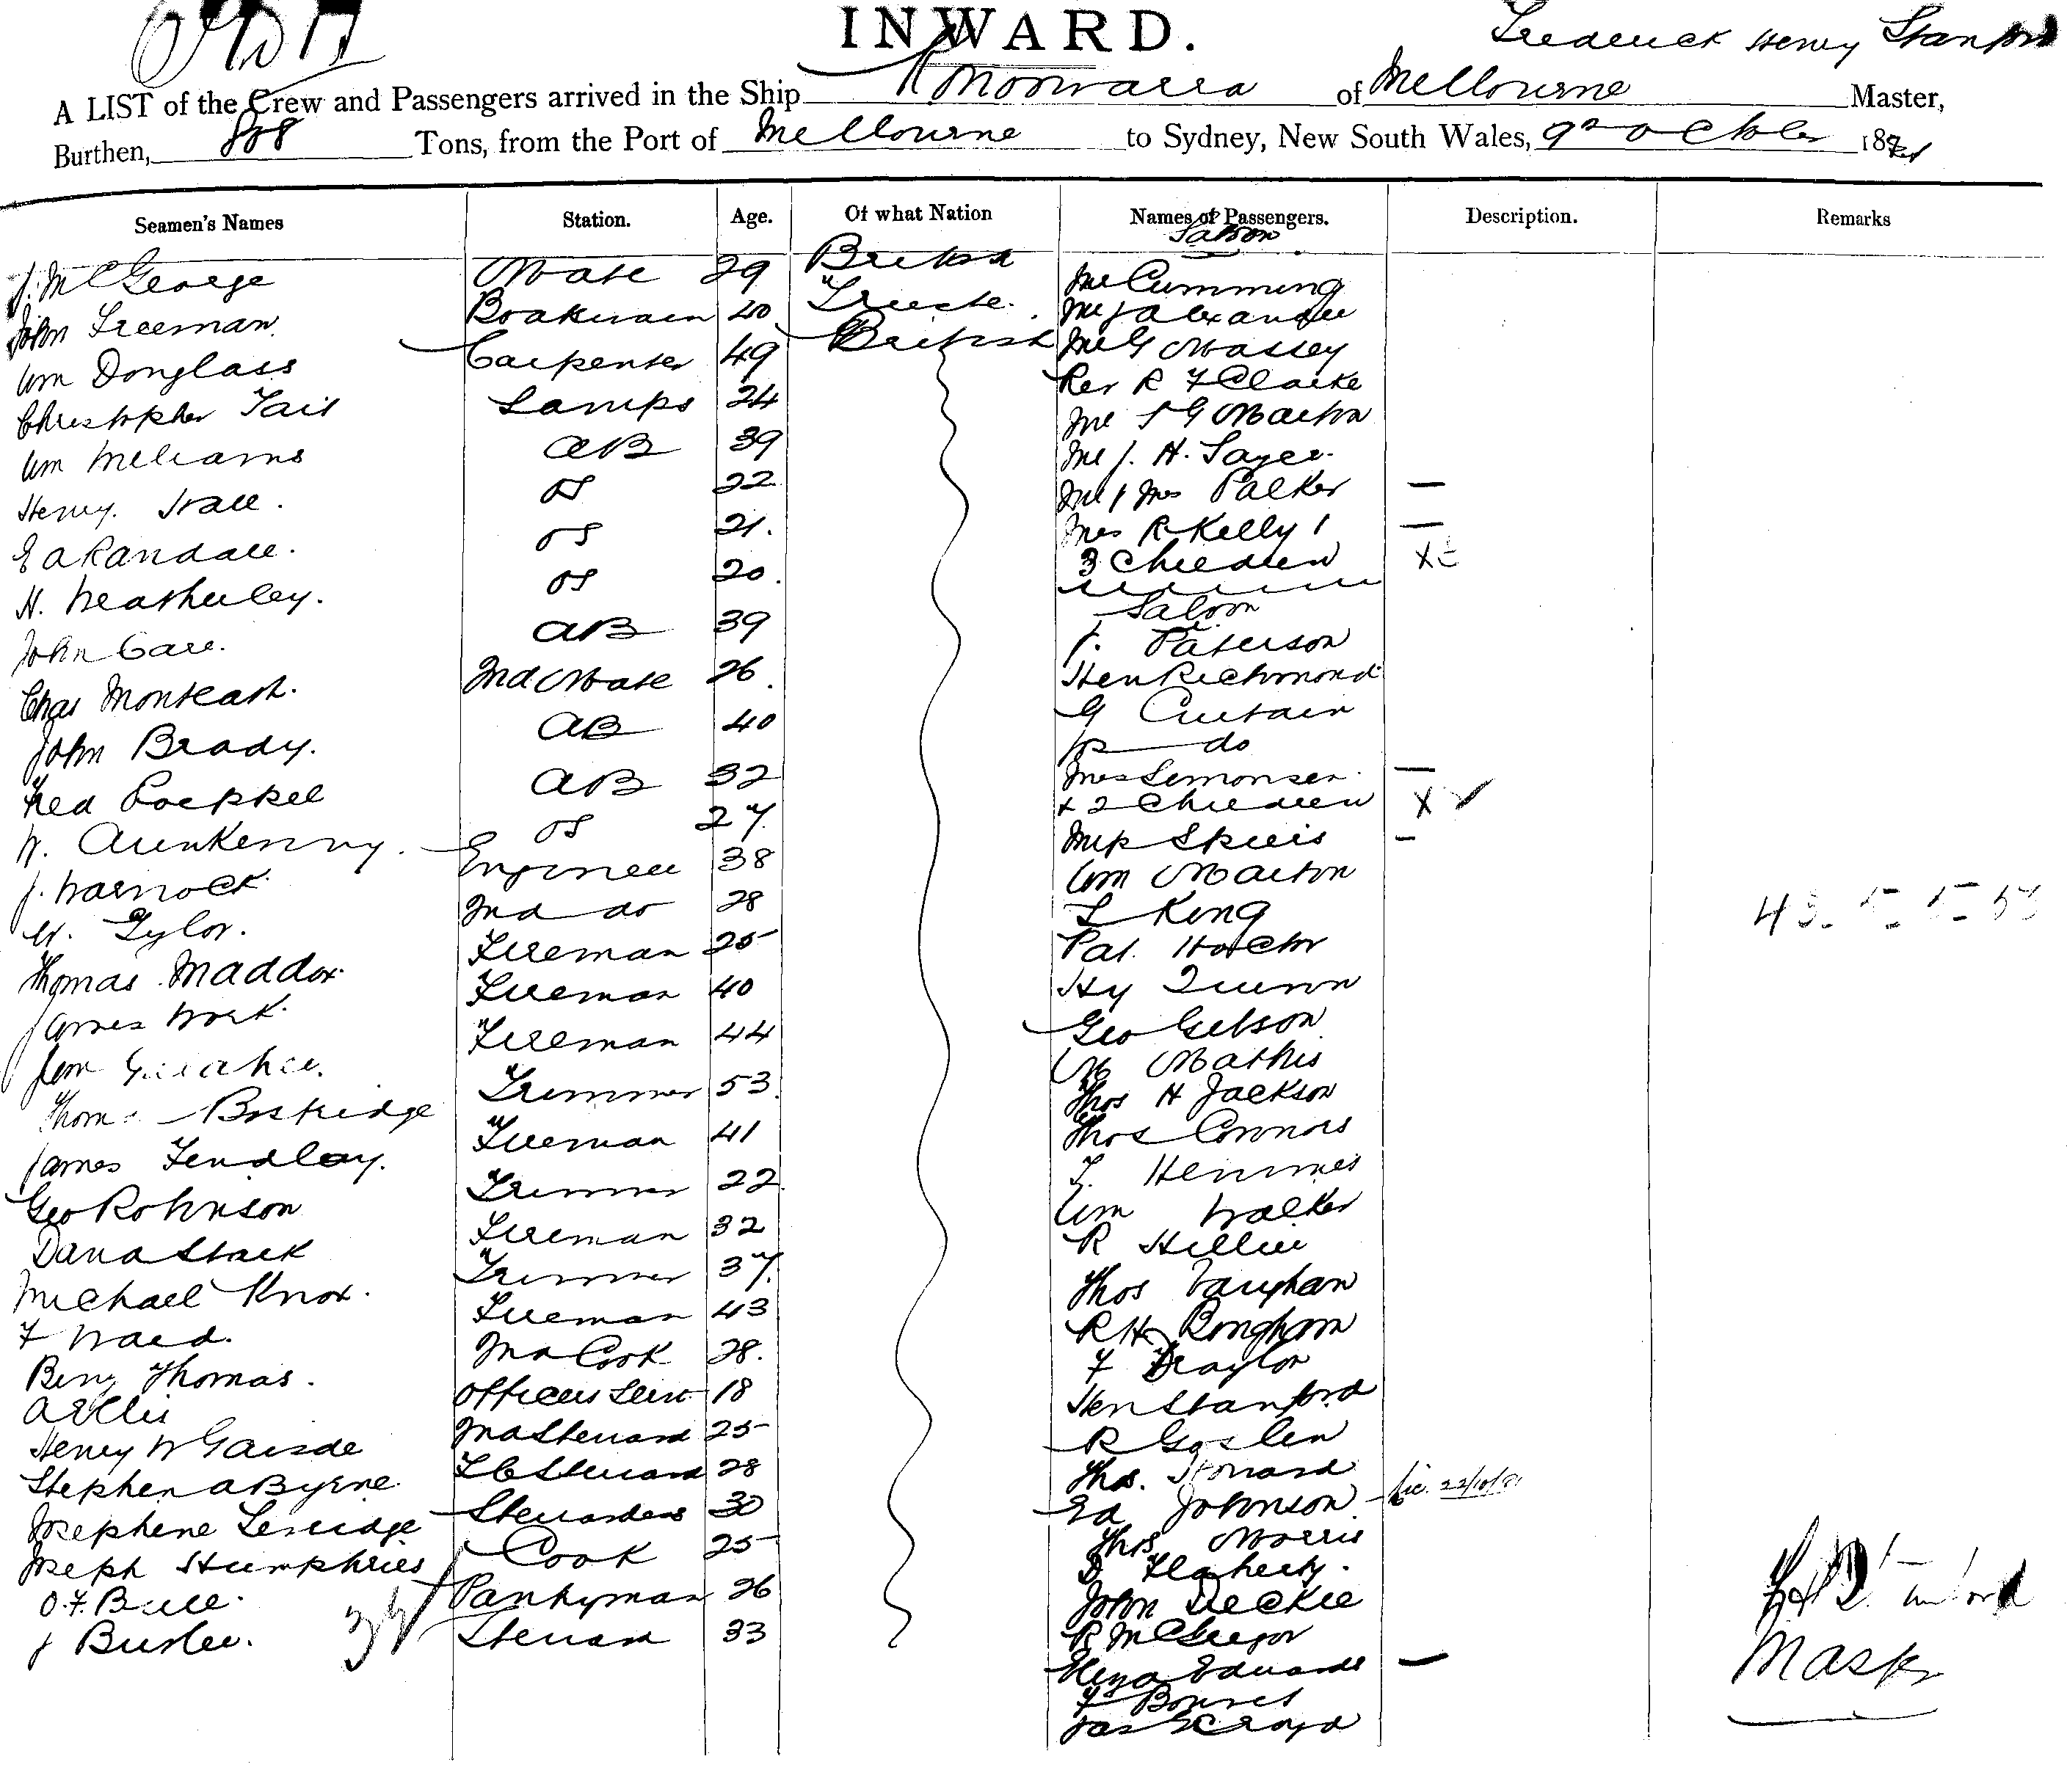 INWARD.
Frederick Henry Stanford
A LIST of the Crew and Passengers arrived in the Ship Konoowarra of Melbourne Master,
Burthen, 808 Tons, from the Port of Melbourne to Sydney, New South Wales, 9th October 18
Seamen's Names Station. Age. Of what Nation Names of Passengers. Description. Remarks
Saloon
J. McGeorge Mate 29 British Mr Cumming
John Freeman Boatswain 40 Mr J Alexander
Wm Douglass Carpenter 49 British Mr G Massey
Christopher Tait Lamps 24 Rev R F Clarke
Wm Williams AB 39 Mr T G Marton
Henry Wall. OS 22 Mr J. H. Sayer.
E A Randall. OS 21. Mr & Mrs Parker —
H. Weatherley. OS 20. Mrs R Kelly & —
3 Children X
John Care. AB 39 Saloon
Chas Monteath. 2nd Mate 26. J. Paterson
John Brady. AB 40 Hen Richmond
Fred Poeppel AB 32 G Curtain
W. OS 27. do
J. Warnock Engineer 38 Mrs Lemonsen
W. Tylor. 2nd do 28 + 2 Children X ✓
Thomas Maddox Fireman 25 —
James Work. Fireman 40 Wm Marton
Fireman 44 L King
Thom Boskidge Trimmer 53. Pat. Hector
James Findlay. Fireman 41 Hy Quinn
Geo Robinson Trimmer 22. Geo Gibson
Stack Fireman 32 M Mathis
Michael Knox. Trimmer 37. Thos H Jackson
F Ward. Fireman 43 Thos Connors
Benj Thomas. 2nd Cook 28. F. Hemmes
A Ellis Officers Servt 18 Wm Walker
Henry W Garside 2nd Steward 25 R Hillier
Stephen A Byrne. F C Steward 28 Thos Vaughan
Josephine Leveridge Stewardess 30 R H Bingham
Joseph Humphries Cook 25 F Draylor
O. F. Bull. Pantryman 26 Hen Stanford
J Butler. Steward 33 R Goslen
34
Thos. Stonard
Ed Johnson
Thos Morris
D Flaherty.
John Deckie
R McGregor
Eliza Edwards —
F Bonnes
Jas
Master